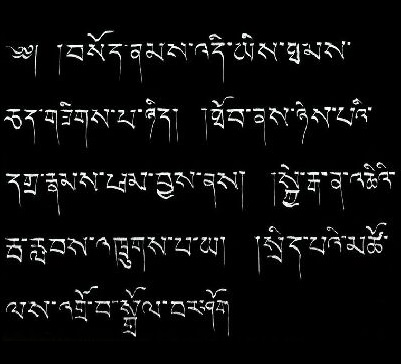 ༄༅། །བསོད་ནམས་འདི་ཡིས་ཐམས་
ཅད་གཟིགས་པ་ཉིད། །ཐོབ་ནས་ཉེས་པའི་
དགྲ་རྣམས་ཕམ་བྱས་ནས། །སྐྱེ་རྒ་ན་འཆིའི་
རྦ་རླབས་འཁྲུགས་པ་ཡ། །སྲིད་པའི་མཚོ་
ལས་འགྲོ་བ་སྒྲོལ་བར་ཤོག